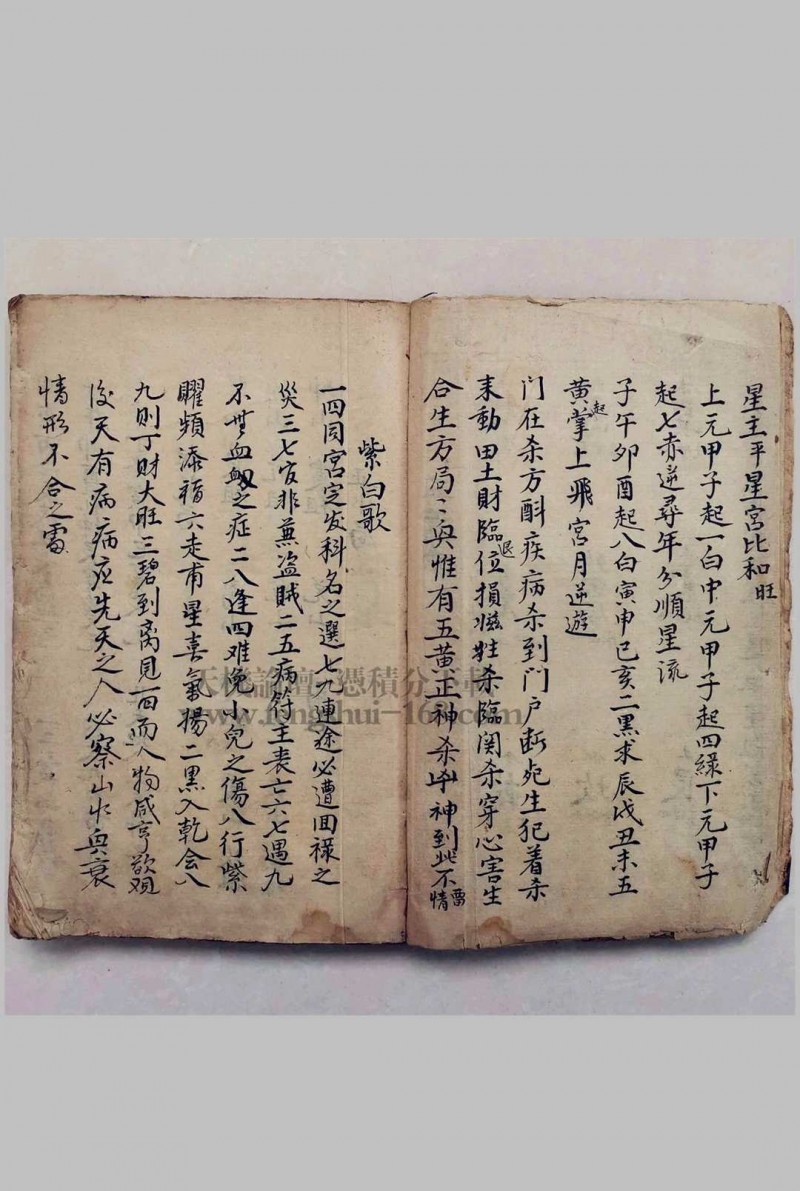 星主平星宮比和旺
上元甲子起一白中元甲子起四綠下元甲子
起七赤逆尋年分順星流
子午卯酉起八白寅申巳亥二黑求辰戌丑未五
黃起掌上飛宮月逆遊
門在杀方酙疾病杀到门户断死生犯着杀
耒動田土財臨位退損滋牲杀臨関杀穿心害生
合生方局〻興惟有五黄正神杀凶神到此不畱情
紫白歌
一四同宮定发科名之選七九連途必遭囬禄之
災三七官非兼盗賊二五病符主丧亡六七遇九
不無血衂之症二八逢四难免小兒之傷八行紫
曜頻添福六走甫星喜氣揚二黑入乾会八
九則丁財大旺三碧到离見一白而人物咸亨欲观
後天有病病应先天之人必察山水興衰
情形不合之雷
www.fengshui-16.com